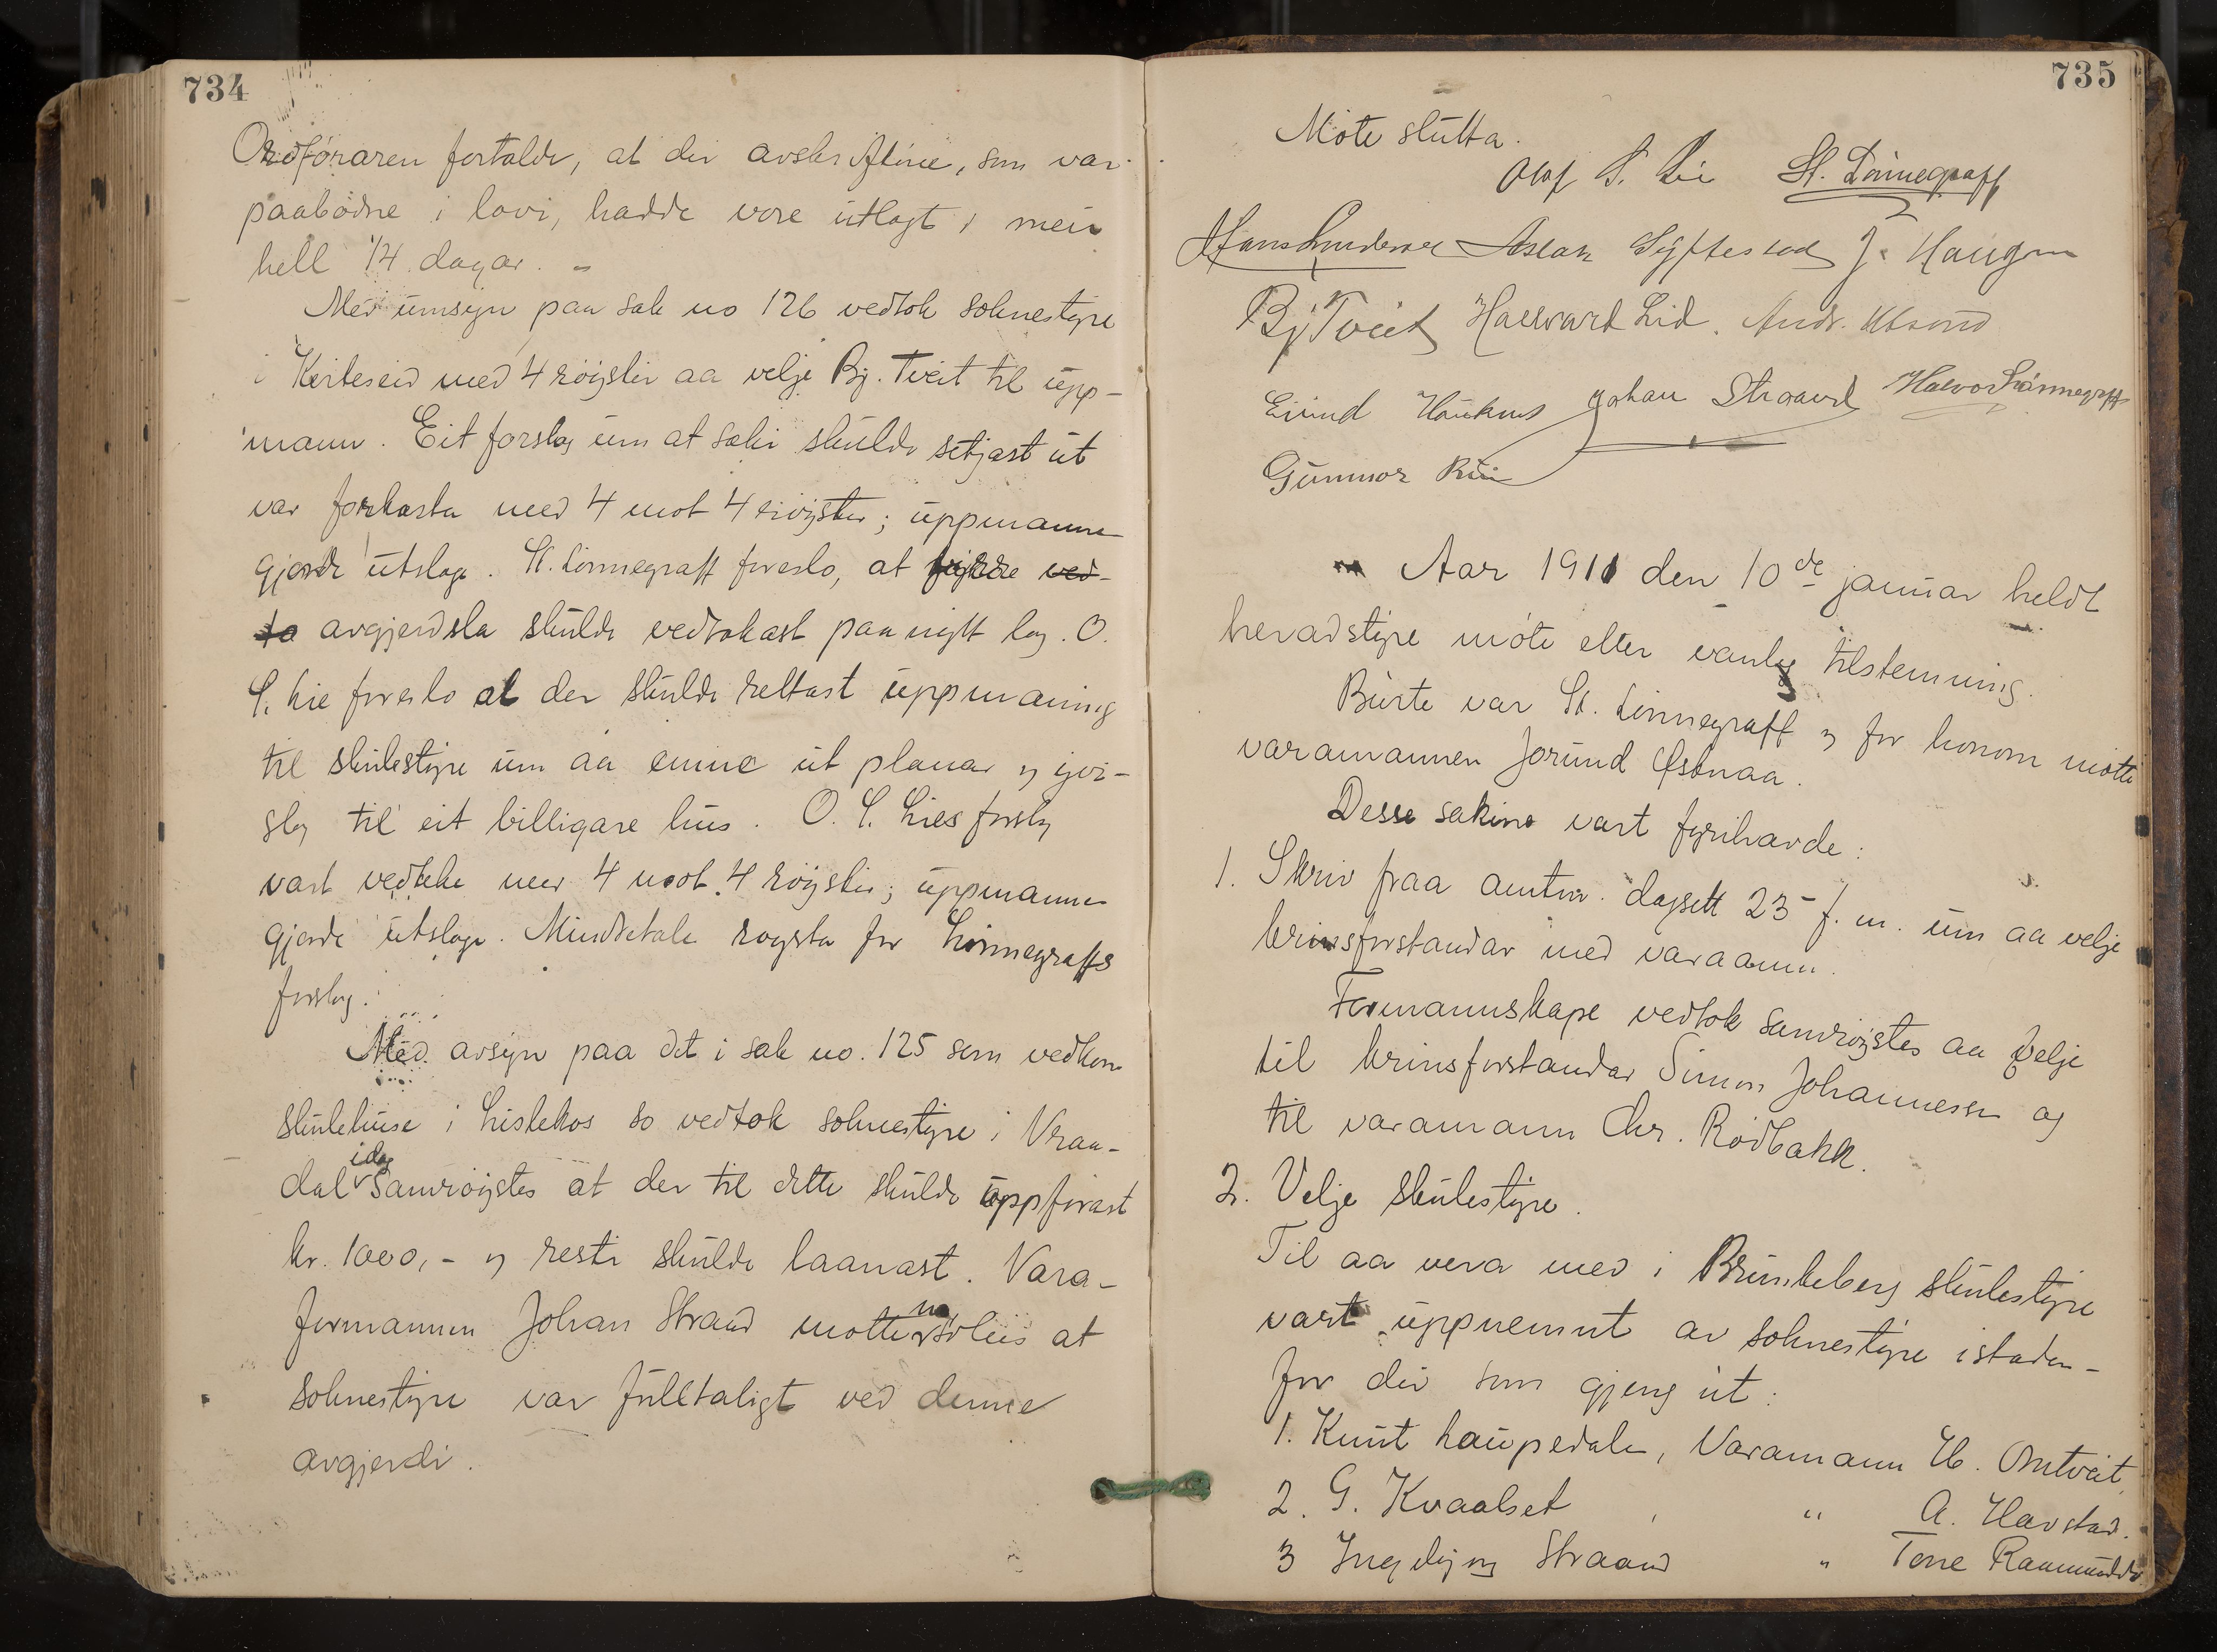 734
Ordføraren fortalde, at dei avskriftine, som var
paabodne i lovi, hadde vore utlagt i mein
hell 14 dagar. -
Med umsyn paa sak no 126 vedtok soknestyre
i Kviteseid med 4 røyster aa velje Bj. Tveit til upp-
mann. Eit forslag um at saki skulde setjast ut
var forkasta med 4 mot 4 røyster; uppmannen
gjorde utslage. St. Lønnegraff foreslo, at
avgjerdsla skulde vedtakast paa nytt lag. O.
S. Lie foreslo at der skulde rettast uppmaning
til skulestyre um aa emne ut planar og yver-
slag til eit billigare hus. O. S. Lies forslag
vart vedteke med 4 moot 4 røyster; uppmannen
gjorde utslage. Mindretale røysta for Lønnegraffs
forslag.
Med avsyn paa det i sak no. 125 som vedkom
skulehuse i Listekos so vedtok soknestyre i Vraa-
dal idag samrøystes at der til dette skulde uppførast
kr. 1000,- og resti skulde laanast. Vara-
formannen Johan Straand møtte no soleis at
soknestyre var fulltaligt ved denne
avgjerdi.
735
Møte slutta.
Olaf S. Lie St. Lønnegraff
Aslak Syftestad J. Haugen
Bj Tveit Hallvard Lid. Andr. Utsond
Eiind Haukens Johan Straand Halvor Lønnegraff
Gunnar
Aar 1911 den 10de januar heldt
heradstyre møte etter vanleg tilstemning.
Burte var St. Lønnegraff og for honom møtte
varamannen Jørund Østnaa.
Desse sakine vart fyrihavde:
1. Skriv fraa amtm. dagsett 23 f. m. um aa velje
krinsforstandar med varaamn.
Formannskape vedtok samrøystes aa velje
til krinsforstandar Simon Johannessen og
til varamann Chr. Rødbakk.
2. Velje skulestyre.
Til aa vera med i Brunkeberg skulestyre
vart uppnemnt av soknestyre istaden-
for dei som gjeng ut:
1. Knut Laupedalen, Varamann H. Omtveit.
2. G. Kvaalset " A. Havstad.
3 Ingebjørg Straand " Tone